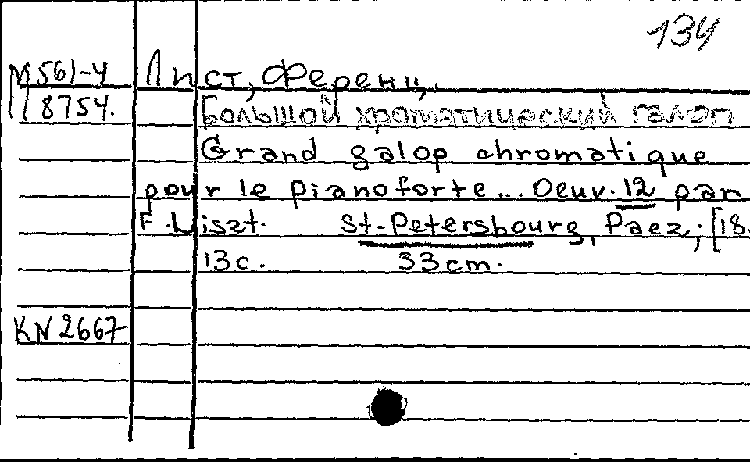 134
М561-4 Лист, Ференц.
Л8754. Большой хроматический галоп
Grand galop chromatique
pour le pianoforte... Oeuv. 12 par
F. Liszt. St-Petersbourg, Paez; [18.
13с. 33cm.
KN2667